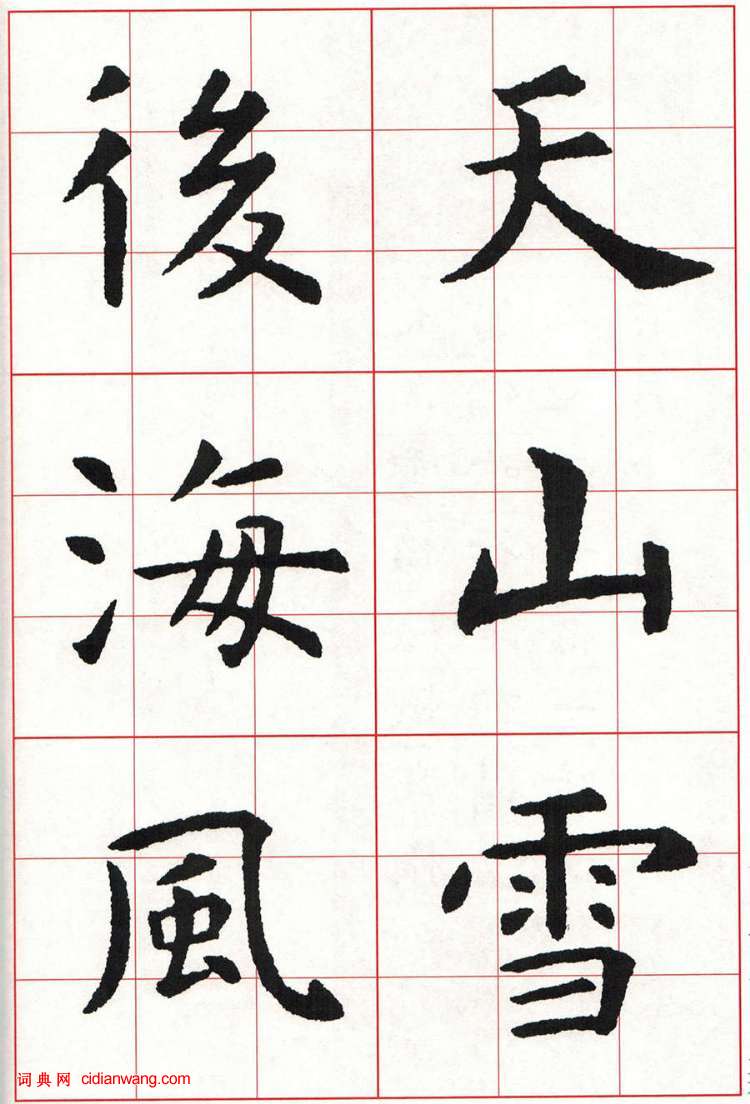 天山雪
後海風
词典网 cidianwang.com